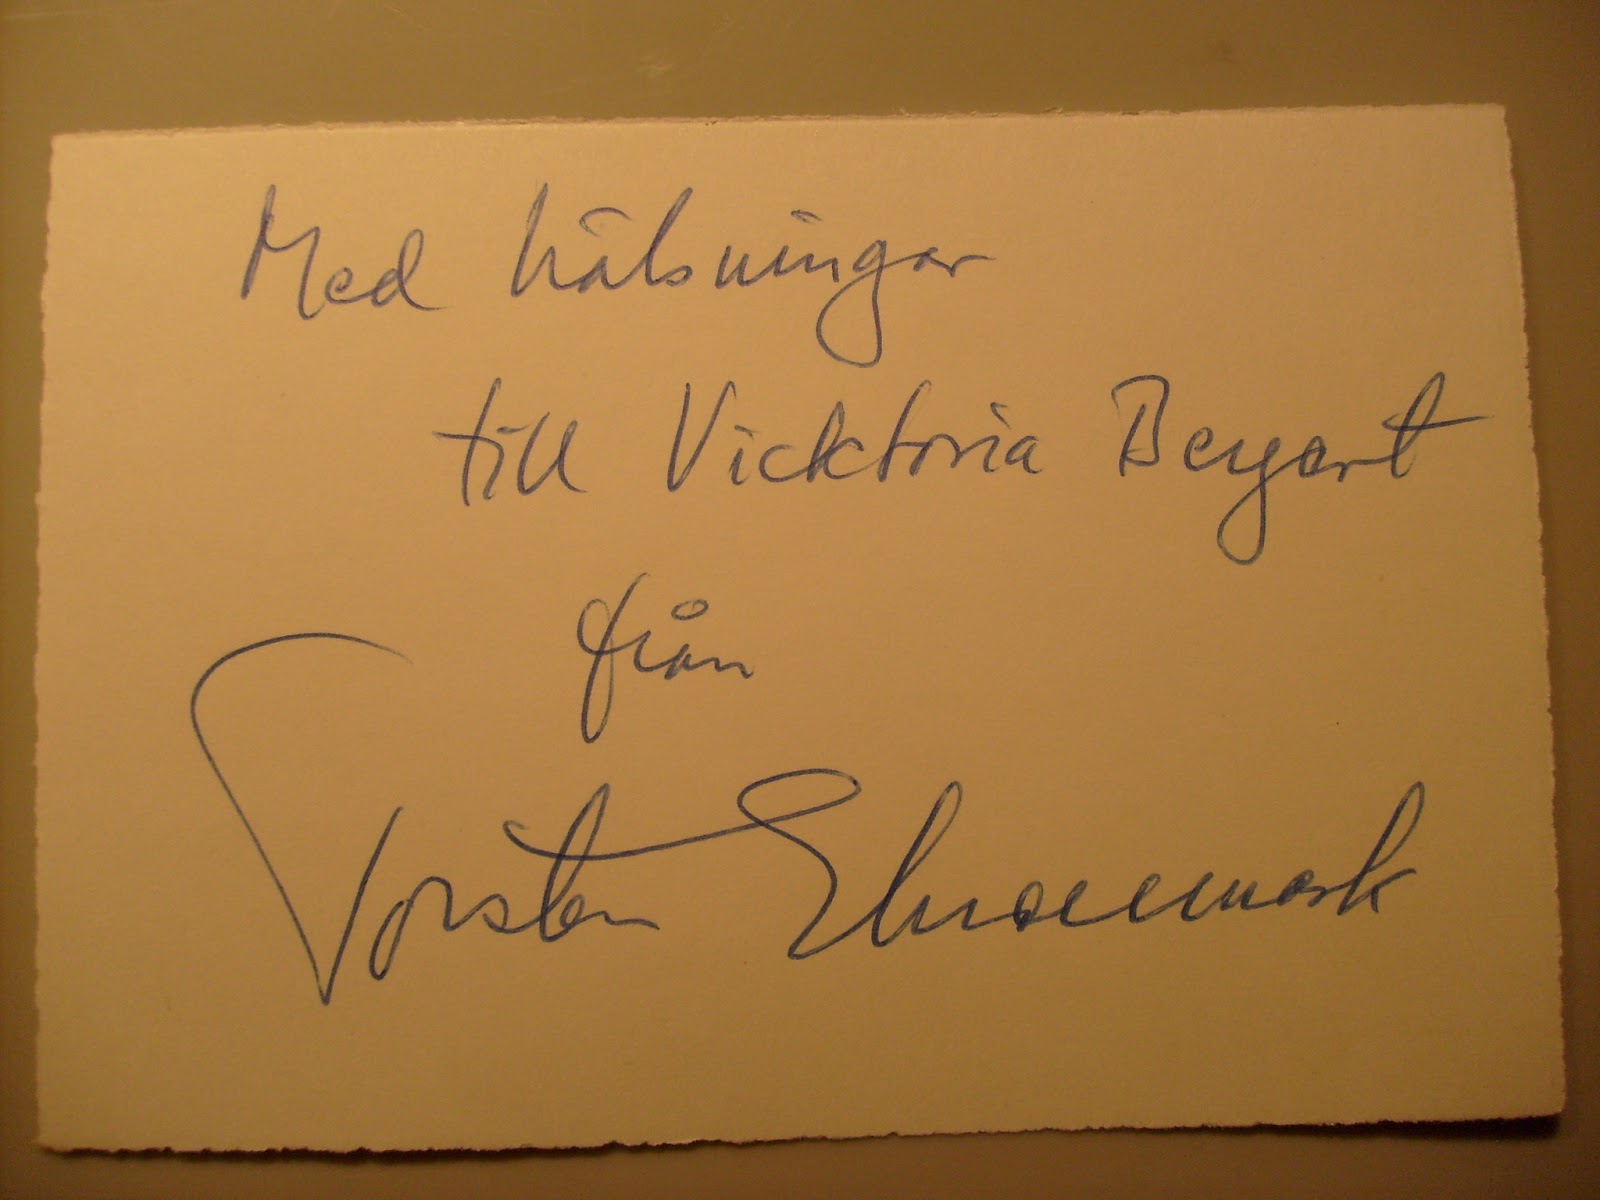 Med hälsningar
till Vicktoria Begert
från
Torsten Ehrenmark